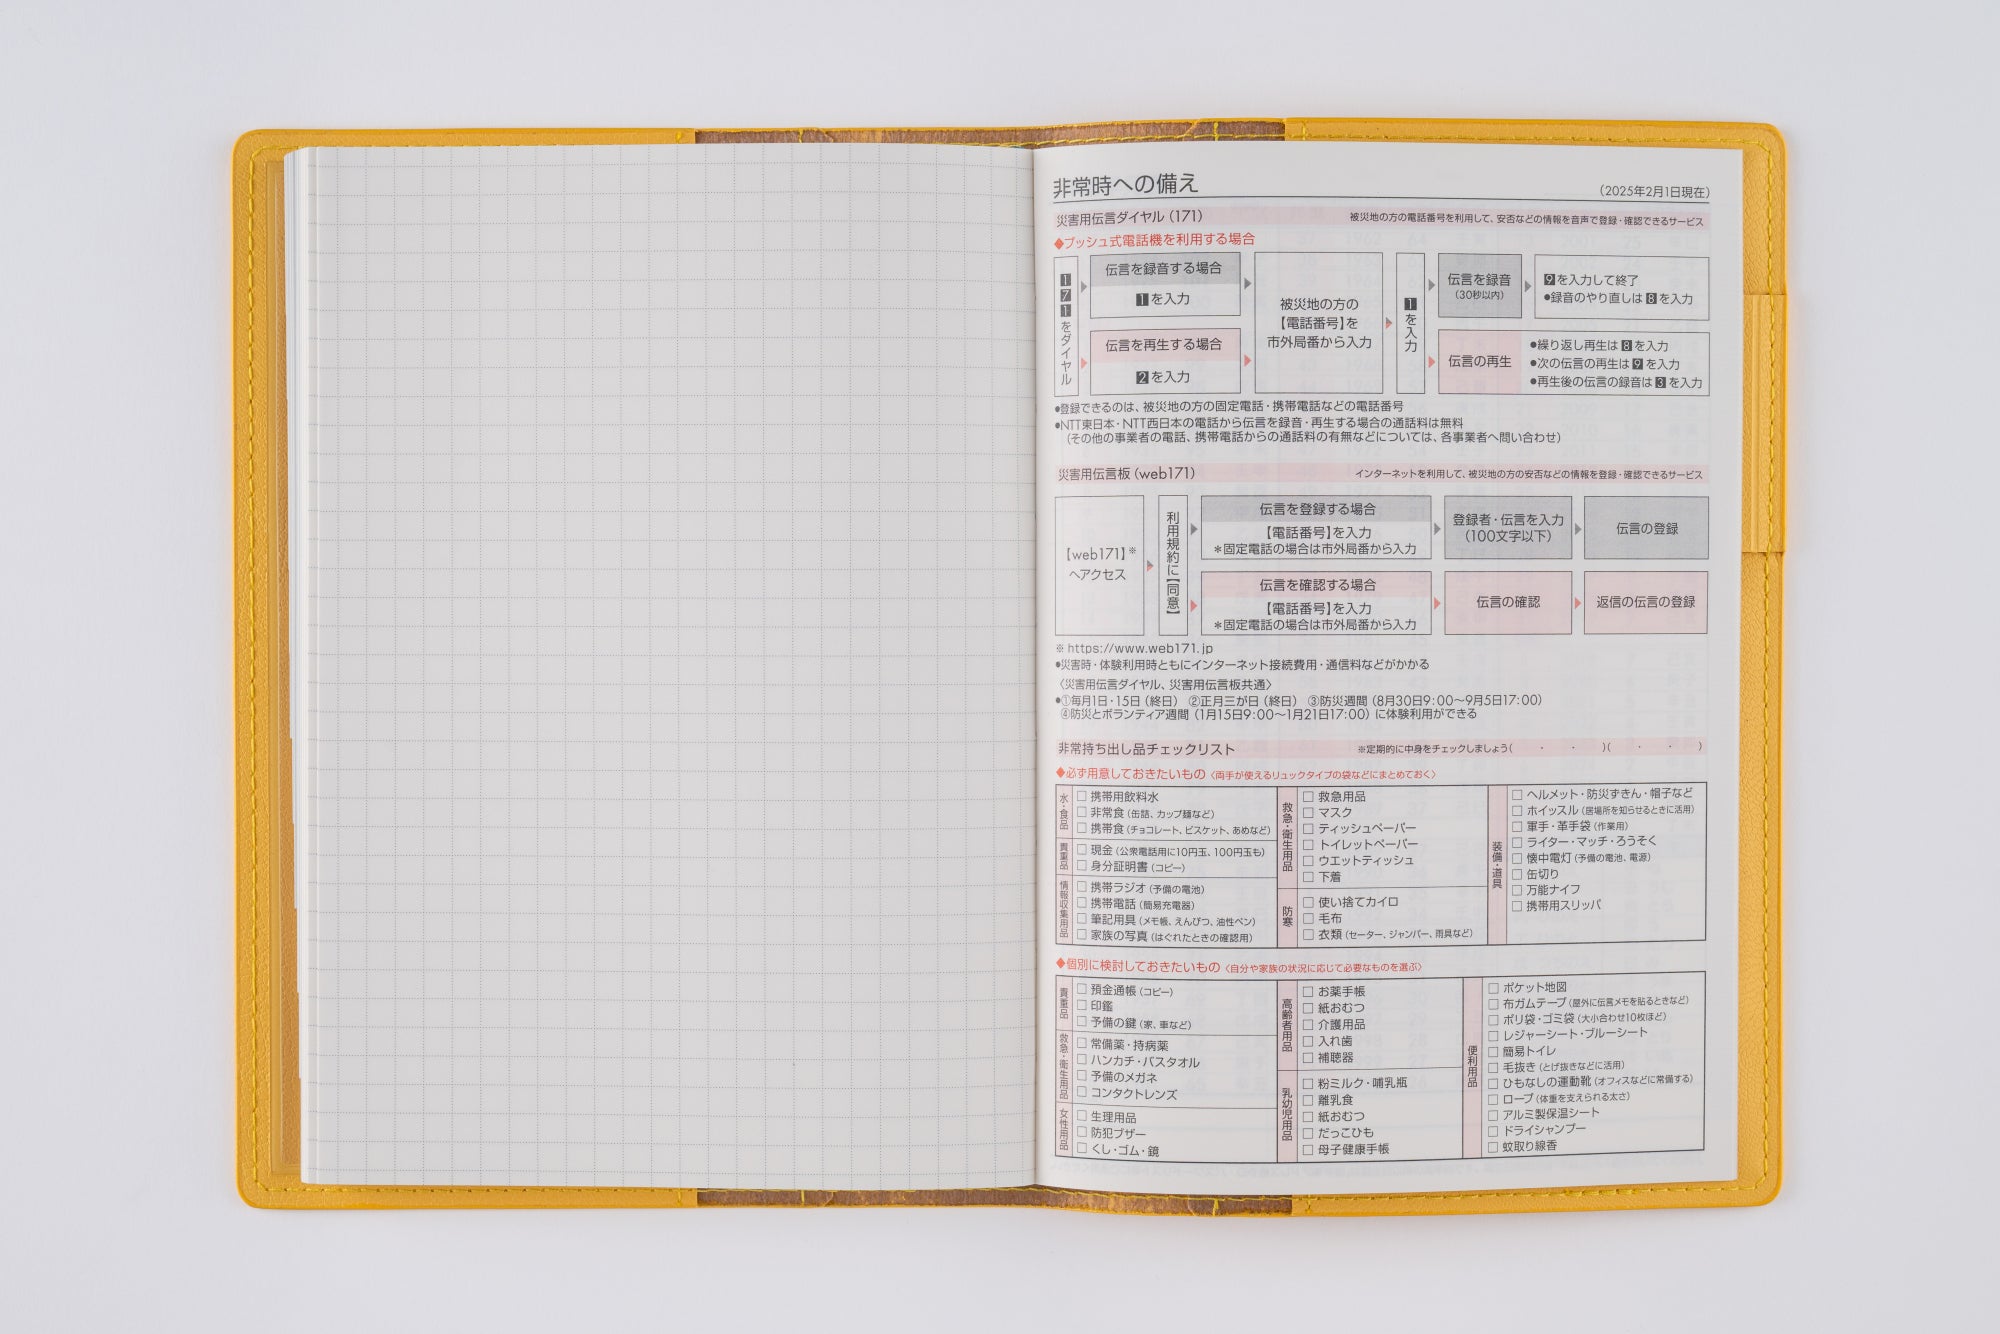 非常時への備え
（2025年2月1日現在）
災害用伝言ダイヤル（171）
被災地の方の電話番号を利用して、安否などの情報を音声で登録・確認できるサービス
◆プッシュ式電話機を利用する場合
171をダイヤル
伝言を録音する場合
1を入力
伝言を再生する場合
2を入力
被災地の方の
【電話番号】を
市外局番から入力
1を入力
伝言を録音
（30秒以内）
9を入力して終了
●録音のやり直しは8を入力
伝言の再生
●繰り返し再生は8を入力
●次の伝言の再生は9を入力
●再生後の伝言の録音は3を入力
●登録できるのは、被災地の方の固定電話・携帯電話などの電話番号
●NTT東日本・NTT西日本の電話から伝言を録音・再生する場合の通話料は無料
（その他の事業者の電話、携帯電話からの通話料の有無などについては、各事業者へ問い合わせ）
災害用伝言板（web171）
インターネットを利用して、被災地の方の安否などの情報を登録・確認できるサービス
【web171】※
へアクセス
利用規約に【同意】
伝言を登録する場合
【電話番号】を入力
＊固定電話の場合は市外局番から入力
登録者・伝言を入力
（100文字以下）
伝言の登録
伝言を確認する場合
【電話番号】を入力
＊固定電話の場合は市外局番から入力
伝言の確認
返信の伝言の登録
※ https://www.web171.jp
●災害時・体験利用時ともにインターネット接続費用・通信料などがかかる
〈災害用伝言ダイヤル、災害用伝言板共通〉
●①毎月1日・15日（終日） ②正月三が日（終日） ③防災週間（8月30日9:00〜9月5日17:00）
④防災とボランティア週間（1月15日9:00〜1月21日17:00）に体験利用ができる
非常持ち出し品チェックリスト
※定期的に中身をチェックしましょう（　・　・　）（　・　・　）
◆必ず用意しておきたいもの〈両手が使えるリュックタイプの袋などにまとめておく〉
水・食品
□ 携帯用飲料水
□ 非常食（缶詰、カップ麺など）
□ 携帯食（チョコレート、ビスケット、あめなど）
貴重品
□ 現金（公衆電話用に10円玉、100円玉も）
□ 身分証明書（コピー）
情報収集用品
□ 携帯ラジオ（予備の電池）
□ 携帯電話（簡易充電器）
□ 筆記用具（メモ帳、えんぴつ、油性ペン）
□ 家族の写真（はぐれたときの確認用）
救急・衛生用品
□ 救急用品
□ マスク
□ ティッシュペーパー
□ トイレットペーパー
□ ウエットティッシュ
□ 下着
防寒
□ 使い捨てカイロ
□ 毛布
□ 衣類（セーター、ジャンパー、雨具など）
装備・道具
□ ヘルメット・防災ずきん・帽子など
□ ホイッスル（居場所を知らせるときに活用）
□ 軍手・革手袋（作業用）
□ ライター・マッチ・ろうそく
□ 懐中電灯（予備の電池、電源）
□ 缶切り
□ 万能ナイフ
□ 携帯用スリッパ
◆個別に検討しておきたいもの〈自分や家族の状況に応じて必要なものを選ぶ〉
貴重品
□ 預金通帳（コピー）
□ 印鑑
□ 予備の鍵（家、車など）
救急・衛生用品
□ 常備薬・持病薬
□ ハンカチ・バスタオル
□ 予備のメガネ
□ コンタクトレンズ
女性用品
□ 生理用品
□ 防犯ブザー
□ くし・ゴム・鏡
高齢者用品
□ お薬手帳
□ 紙おむつ
□ 介護用品
□ 入れ歯
□ 補聴器
乳幼児用品
□ 粉ミルク・哺乳瓶
□ 離乳食
□ 紙おむつ
□ だっこひも
□ 母子健康手帳
便利用品
□ ポケット地図
□ 布ガムテープ（屋外に伝言メモを貼るときなど）
□ ポリ袋・ゴミ袋（大小合わせ10枚ほど）
□ レジャーシート・ブルーシート
□ 簡易トイレ
□ 毛抜き（とげ抜きなどに活用）
□ ひもなしの運動靴（オフィスなどに常備する）
□ ロープ（体重を支えられる太さ）
□ アルミ製保温シート
□ ドライシャンプー
□ 蚊取り線香